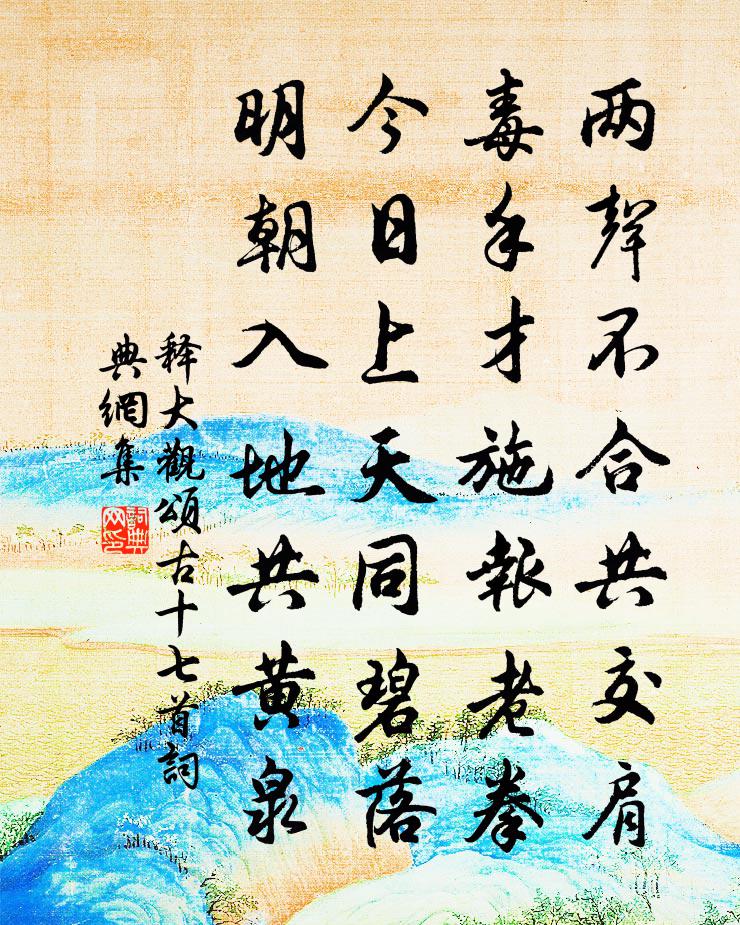 两聲不合共交肩
毒手才施報老拳
今日上天同碧落
明朝入地共黄泉
释大觀頌古十七首詞
典網集
詞典
网印